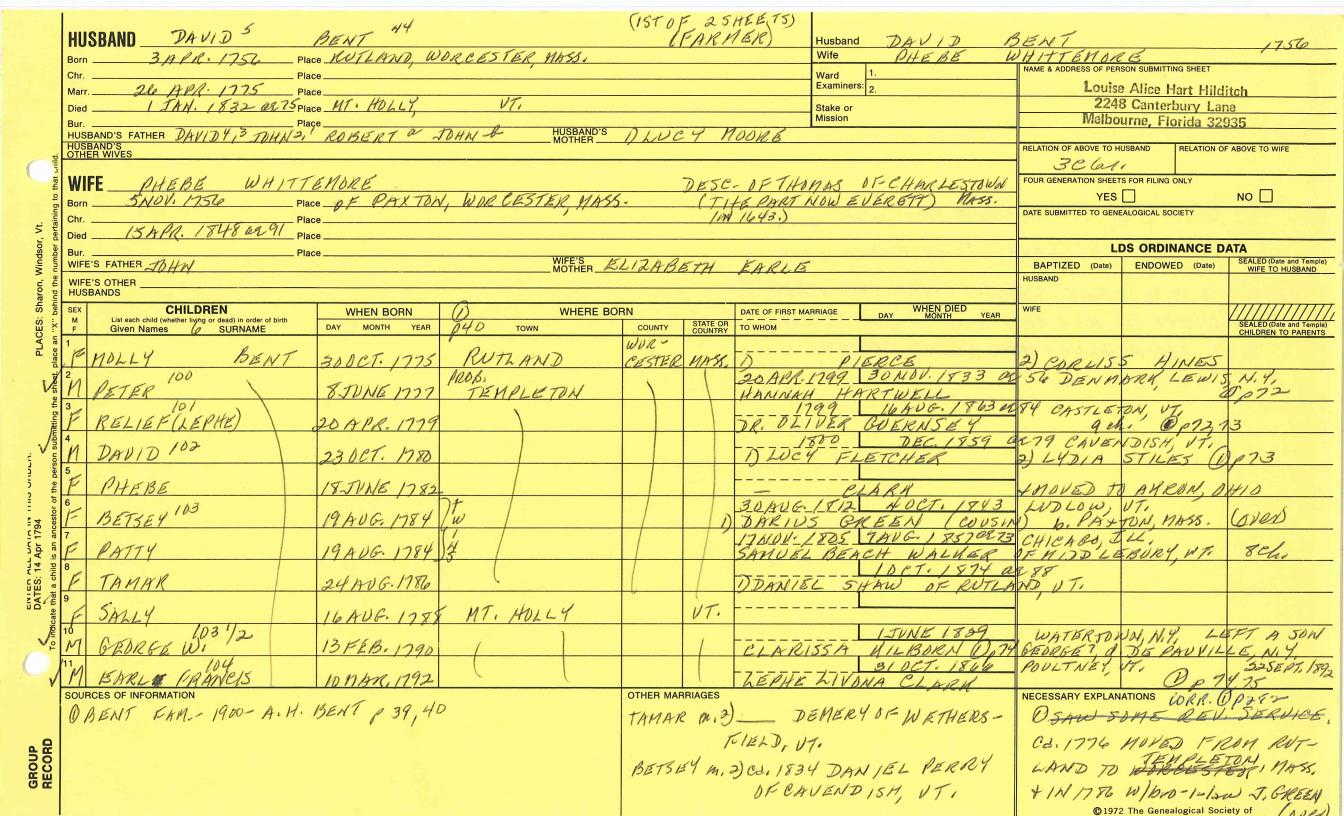 (1ST OF 2 SHEETS)
HUSBAND DAVID 5 BENT 44 (FARMER)
Born 3 APR. 1756 Place RUTLAND, WORCESTER, MASS.
Chr. Place
Marr. 26 APR. 1775 Place
Died 1 JAN. 1832 ae 75 Place MT. HOLLY, VT.
Bur. Place
HUSBAND'S FATHER DAVID 4, 3 JOHN 2, 1 ROBERT a JOHN b HUSBAND'S MOTHER 1) LUCY MOORE
HUSBAND'S OTHER WIVES
Husband DAVID BENT 1756
Wife PHEBE WHITTEMORE
Ward Examiners: 1. 2.
Stake or Mission
NAME & ADDRESS OF PERSON SUBMITTING SHEET
Louise Alice Hart Hilditch
2248 Canterbury Lane
Melbourne, Florida 32935
RELATION OF ABOVE TO HUSBAND RELATION OF ABOVE TO WIFE
FOUR GENERATION SHEETS FOR FILING ONLY
YES NO
DATE SUBMITTED TO GENEALOGICAL SOCIETY
WIFE PHEBE WHITTEMORE DESC. OF THOMAS OF CHARLESTOWN
Born 5 NOV. 1756 Place of PAXTON, WORCESTER, MASS. (THE PART NOW EVERETT) MASS.
Chr. Place (in 1643.)
Died 15 APR. 1848 ae 91 Place
Bur. Place
WIFE'S FATHER JOHN WIFE'S MOTHER ELIZABETH EARLE
WIFE'S OTHER HUSBANDS
LDS ORDINANCE DATA
BAPTIZED (Date) ENDOWED (Date) SEALED (Date and Temple) WIFE TO HUSBAND
HUSBAND
WIFE
SEALED (Date and Temple) CHILDREN TO PARENTS
SEX M F CHILDREN List each child (whether living or dead) in order of birth Given Names SURNAME
WHEN BORN DAY MONTH YEAR
① p40 WHERE BORN TOWN COUNTY STATE OR COUNTRY
DATE OF FIRST MARRIAGE TO WHOM
WHEN DIED DAY MONTH YEAR
1 F MOLLY BENT 30 OCT. 1775 RUTLAND WOR-CESTER MASS. 1) PIERCE 2) CORLISS HINES
2 M PETER 100 8 JUNE 1777 PROB. TEMPLETON 20 APR. 1799 30 NOV. 1833 ae 56 DENMARK, LEWIS, N.Y.
HANNAH HARTWELL ① p72
3 F RELIEF (LEPHE) 101 20 APR. 1779 1799 16 AUG. 1863 ae 84 CASTLETON, VT.
DR. OLIVER GUERNSEY 9 ch. ① p72,73
4 M DAVID 102 23 OCT. 1780 1800 DEC. 1859 ae 79 CAVENDISH, VT.
1) LUCY FLETCHER 2) LYDIA STILES ① p73
5 F PHEBE 18 JUNE 1782 — CLARK + MOVED TO AKRON, OHIO
6 F BETSEY 103 19 AUG. 1784 TWINS 30 AUG. 1812 4 OCT. 1843 LUDLOW, VT.
1) DARIUS GREEN (COUSIN) b. PAXTON, MASS. (over)
7 F PATTY 19 AUG. 1784 17 NOV. 1805 7 AUG. 1857 ae 73 CHICAGO, ILL.
SAMUEL BEACH WALKER OF MIDDLEBURY, VT. 8 ch.
8 F TAMAR 24 AUG. 1786 1 OCT. 1874 ae 88
1) DANIEL SHAW OF RUTLAND, VT.
9 F SALLY 16 AUG. 1788 MT. HOLLY VT.
10 M GEORGE W. 103 1/2 13 FEB. 1790 1 JUNE 1859 WATERTOWN, N.Y. LEFT A SON
CLARISSA HILBORN ① p74 GEORGE? d DE PAUVILLE, N.Y.
11 M EARL FRANCIS 104 10 MAR. 1792 31 OCT. 1866 POULTNEY, VT. 22 SEPT. 1892
LEPHE LIVONA CLARK ① p 74 75
SOURCES OF INFORMATION
① BENT FAM. - 1900 - A.H. BENT p 39, 40
OTHER MARRIAGES
TAMAR m. 2) ___ DEMERY OF WETHERS-
FIELD, VT.
BETSEY m. 2) Cd. 1834 DANIEL PERRY
OF CAVENDISH, VT.
NECESSARY EXPLANATIONS CORR. ① p292
① SAW SOME REV. SERVICE.
Cd. 1776 MOVED FROM RUT-
LAND TO WORCESTER TEMPLETON, MASS.
+ IN 1786 W/bro-i-law J. GREEN
(over)
©1972 The Genealogical Society of
PLACES: Sharon, Windsor, Vt.
DATES: 14 Apr 1794
ENTER ALL DATA IN THIS ORDER:
To indicate that a child is an ancestor of the person submitting the sheet, place an "X" behind the number pertaining to that child.
GROUP RECORD